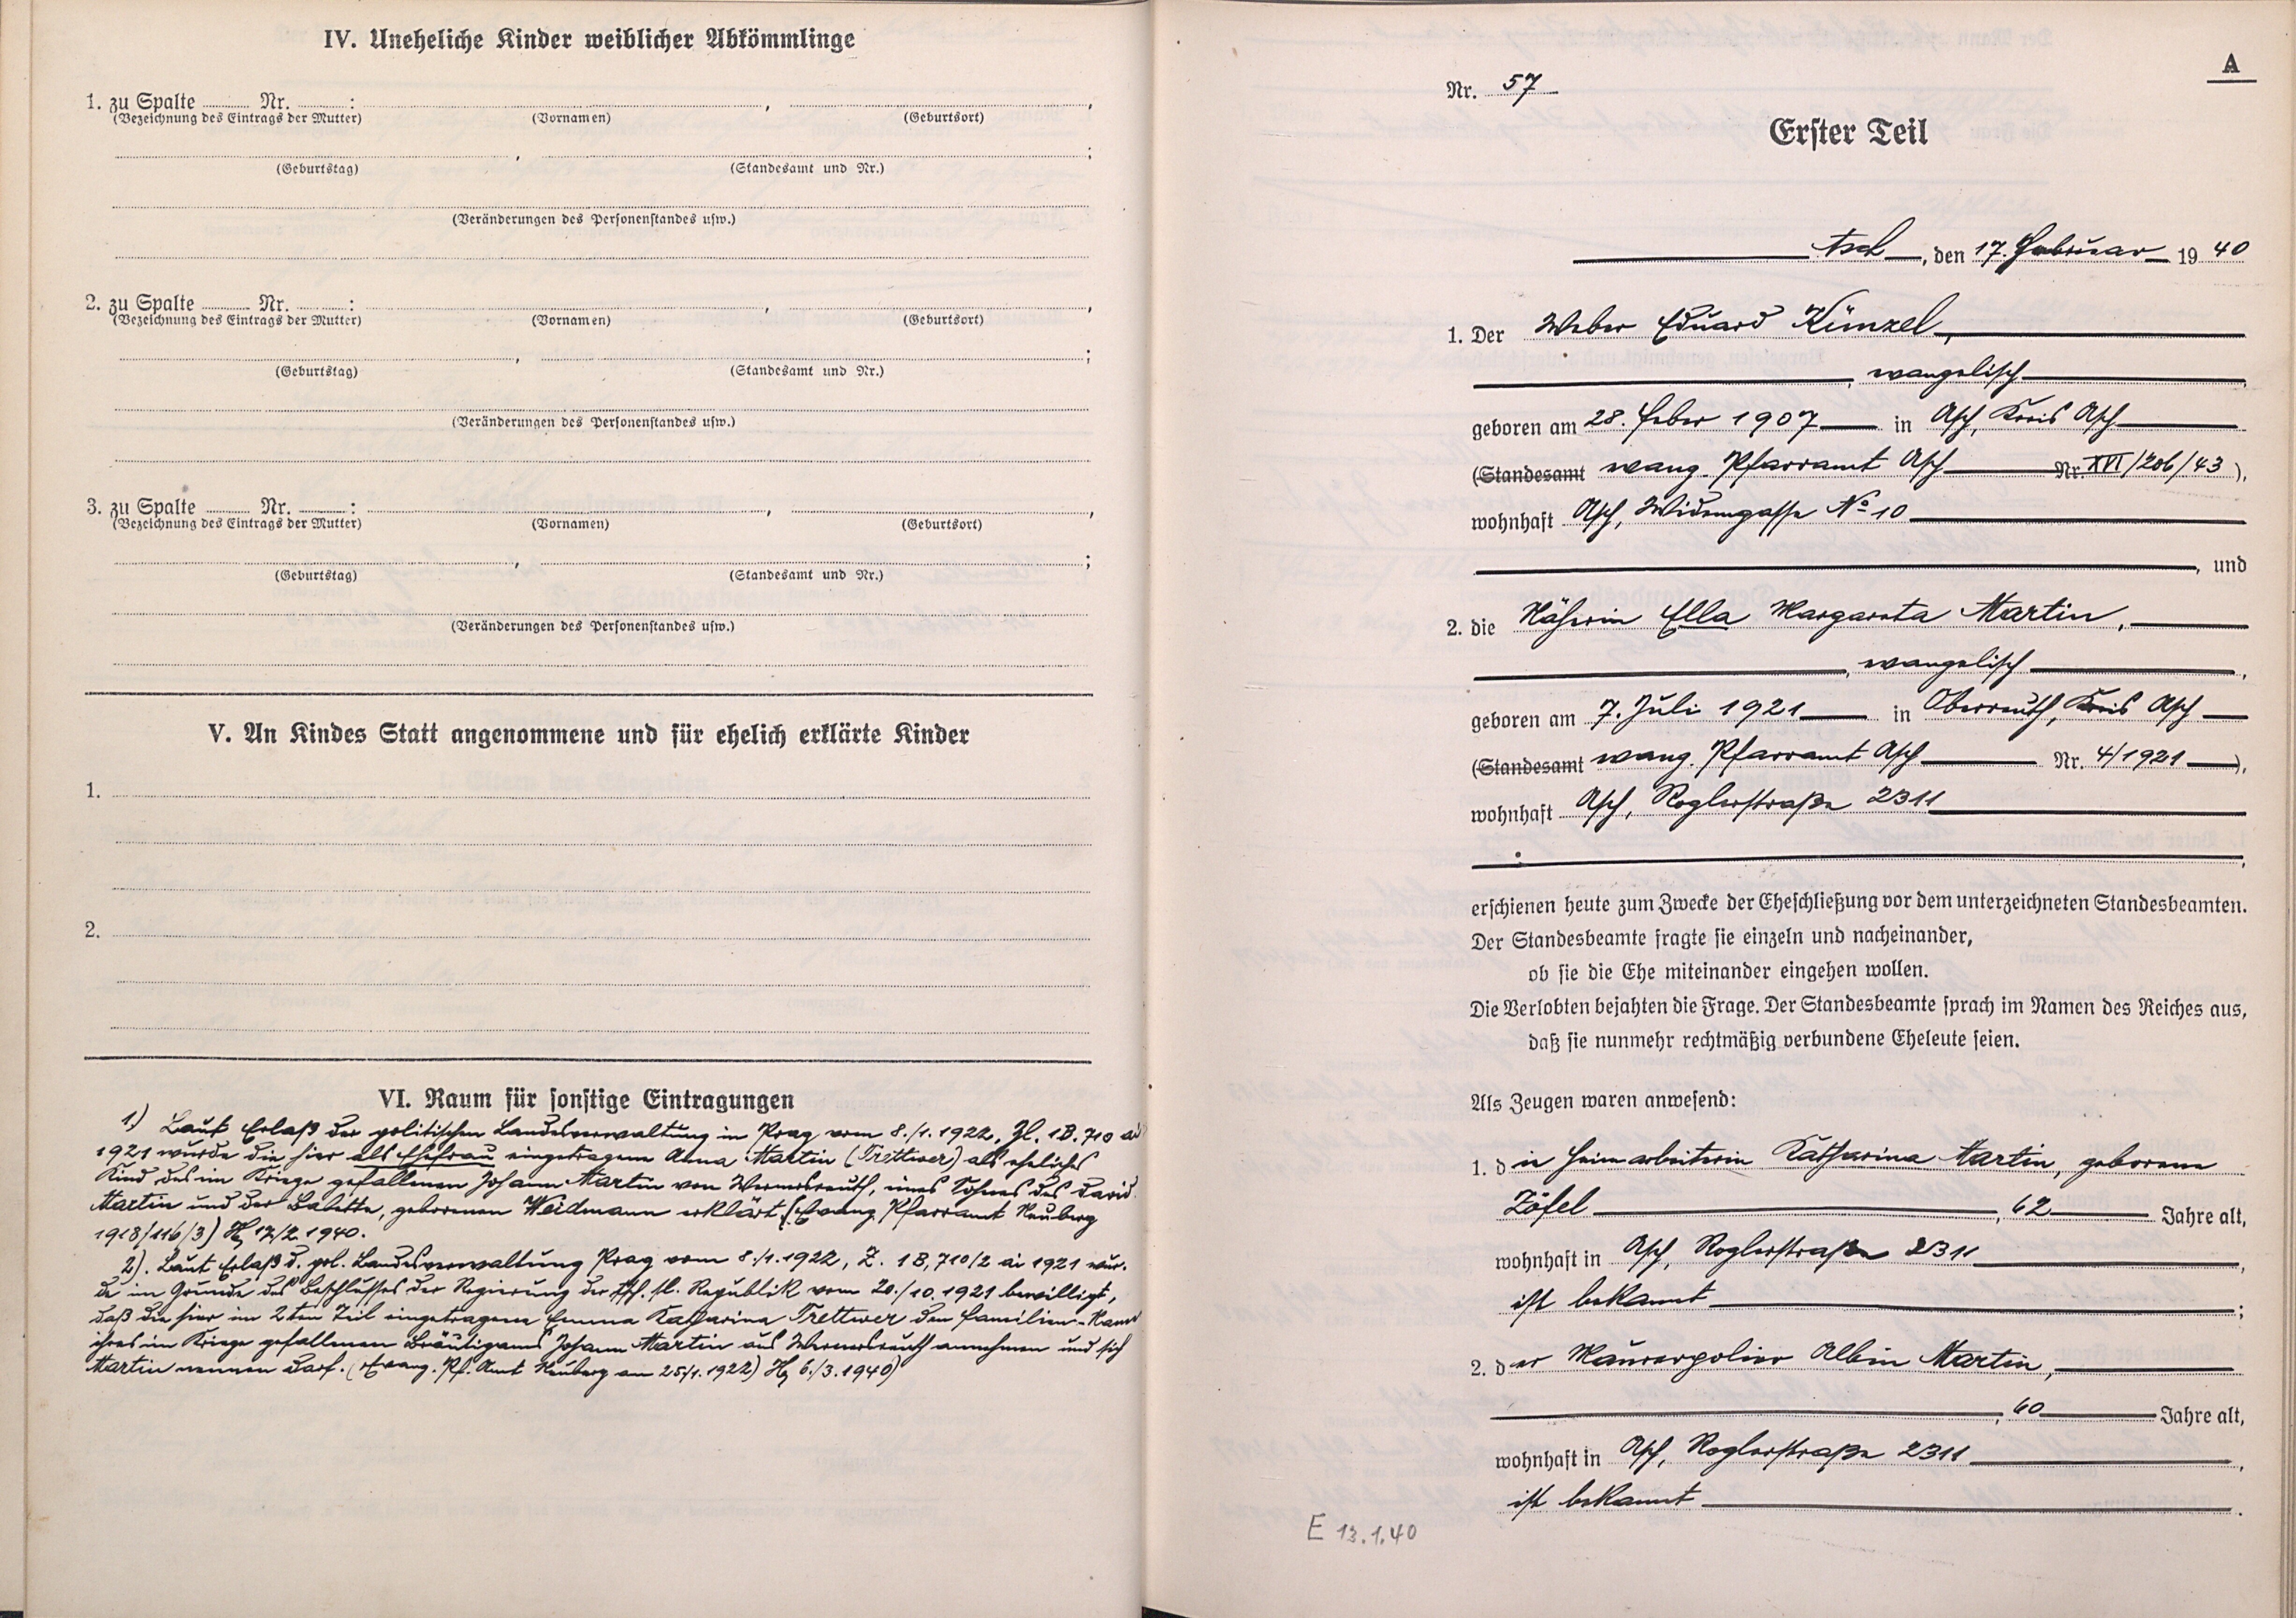 IV. Uneheliche Kinder weiblicher Abkömmlinge
1. zu Spalte Nr. : , ,
(Bezeichnung des Eintrags der Mutter) (Vornamen) (Geburtsort)
, ;
(Geburtstag) (Standesamt und Nr.)
(Veränderungen des Personenstandes usw.)
2. zu Spalte Nr. : , ,
(Bezeichnung des Eintrags der Mutter) (Vornamen) (Geburtsort)
, ;
(Geburtstag) (Standesamt und Nr.)
(Veränderungen des Personenstandes usw.)
3. zu Spalte Nr. : , ,
(Bezeichnung des Eintrags der Mutter) (Vornamen) (Geburtsort)
, ;
(Geburtstag) (Standesamt und Nr.)
(Veränderungen des Personenstandes usw.)
V. An Kindes Statt angenommene und für ehelich erklärte Kinder
1.
2.
VI. Raum für sonstige Eintragungen
1.) Laut Erlaß der politischen Landesverwaltung in Prag vom 8./1.1922, Zl. 1B.710 ai
1921 wurde die hier als Ehefrau eingetragene Anna Martin (Trettwer) als eheliches
Kind des im Kriege gefallenen Johann Martin von Wernersreuth, eines Sohnes des David
Martin und der Babette, geborenen Weidmann erklärt. (Evang. Pfarramt Neuberg
1918/116/3) 17/2 1940.
2). Laut Erlaß d. pol. Landesverwaltung Prag vom 8./1.1922, Z. 1B,710/2 ai 1921 wur-
de im Grunde des Beschlusses der Regierung der tsch. sl. Republik vom 20./10.1921 bewilligt,
daß die hier im 2ten Teil eingetragene Emma Katharina Trettwer den Familien-Namen
ihres im Kriege gefallenen Bräutigams Johann Martin aus Wernersreuth annehmen und sich
Martin nennen darf. (Evang. Pf. Amt Neuberg am 25/1.1922) 6./3.1940)
A
Nr. 57
Erster Teil
Asch, den 17. Februar 19 40
1. Der Weber Eduard Künzel,
, evangelisch,
geboren am 28. Feber 1907 in Asch, Kreis Asch
(Standesamt evang. Pfarramt Asch Nr. XVI/206/43),
wohnhaft Asch, Widemgasse No 10
, und
2. die Näherin Ella Margareta Martin,
, evangelisch,
geboren am 7. Juli 1921 in Oberreuth, Kreis Asch
(Standesamt evang. Pfarramt Asch Nr. 4/1921),
wohnhaft Asch, Roglerstraße 2311
,
erschienen heute zum Zwecke der Eheschließung vor dem unterzeichneten Standesbeamten.
Der Standesbeamte fragte sie einzeln und nacheinander,
ob sie die Ehe miteinander eingehen wollen.
Die Verlobten bejahten die Frage. Der Standesbeamte sprach im Namen des Reiches aus,
daß sie nunmehr rechtmäßig verbundene Eheleute seien.
Als Zeugen waren anwesend:
1. die Heimarbeiterin Katharina Martin, geborene
Zöfel, 62 Jahre alt,
wohnhaft in Asch, Roglerstraße 2311,
ist bekannt;
2. der Maurerpolier Albin Martin,
, 60 Jahre alt,
wohnhaft in Asch, Roglerstraße 2311,
ist bekannt.
E 13.1.40